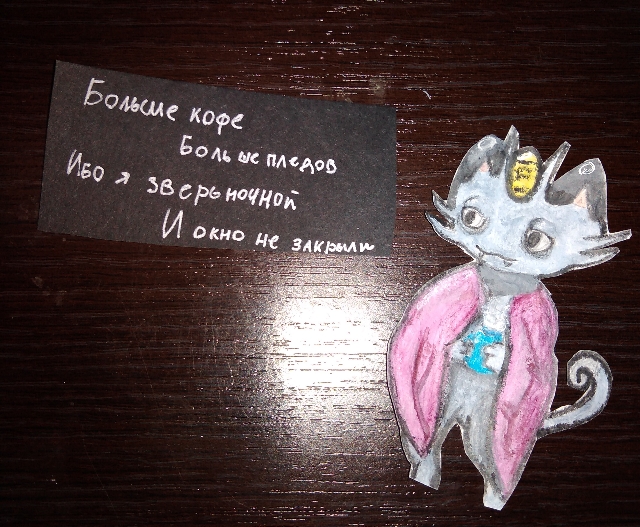 Больше кофе
Больше пледов
Ибо я зверь ночной
И окно не закрыли